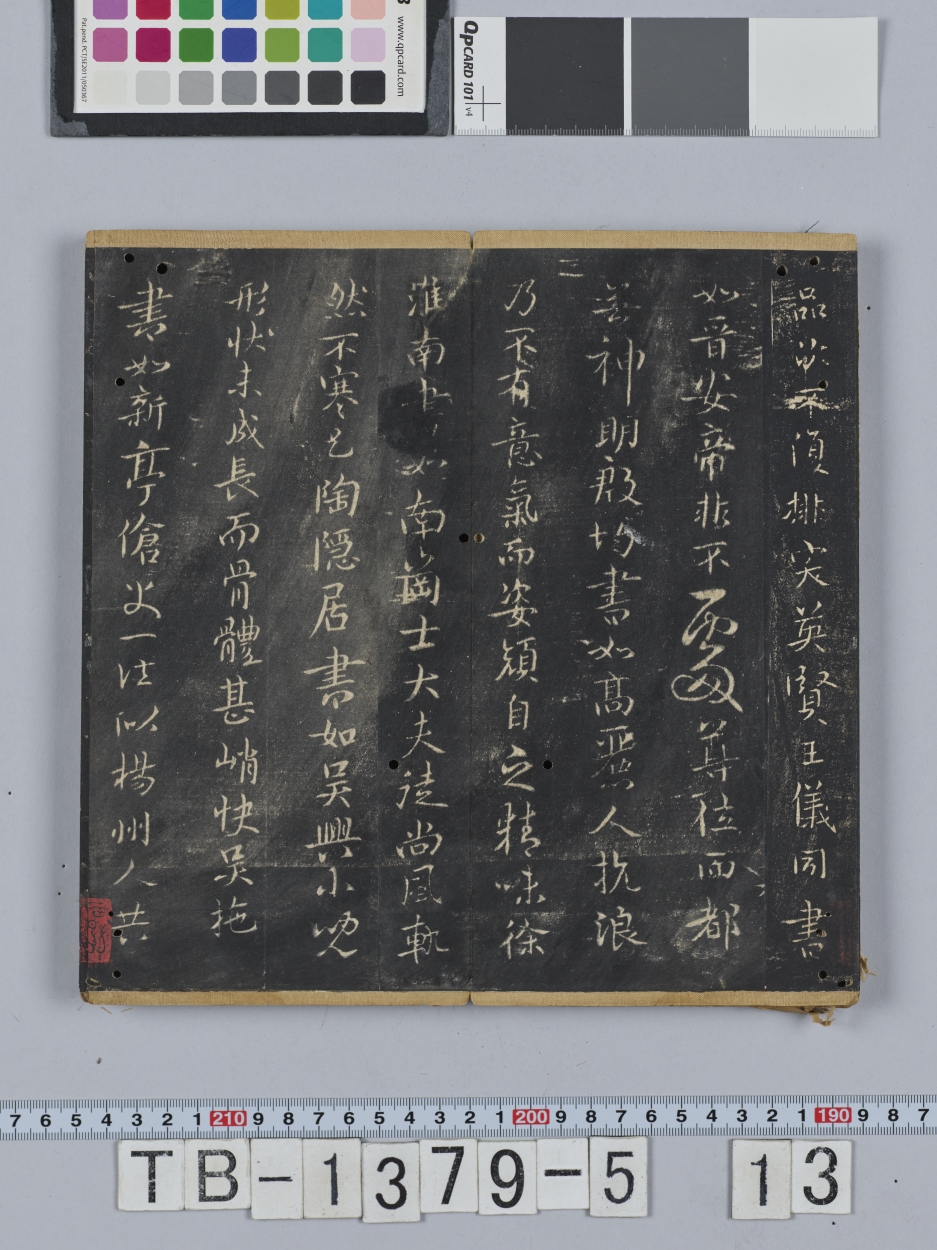 www.qpcard.com
Pat.pend. PCT/SE2011/050367
QPCARD 101 v4
品 不須排突英賢王儀同書
如晉安帝非不處尊位而都
無神明殷均書如高麗人抗浪
乃不有意氣而姿顏自乏精味徐
淮南書如南岡士大夫徒尚風軌
然不寒乞陶隱居書如吳興小兒
形狀未成長而骨體甚峭快吳施
書如新亭傖父一往似楊州人共
7 6 5 4 3 2 1 210 9 8 7 6 5 4 3 2 1 200 9 8 7 6 5 4 3 2 1 190 9 8 7
TB-1379-5 13